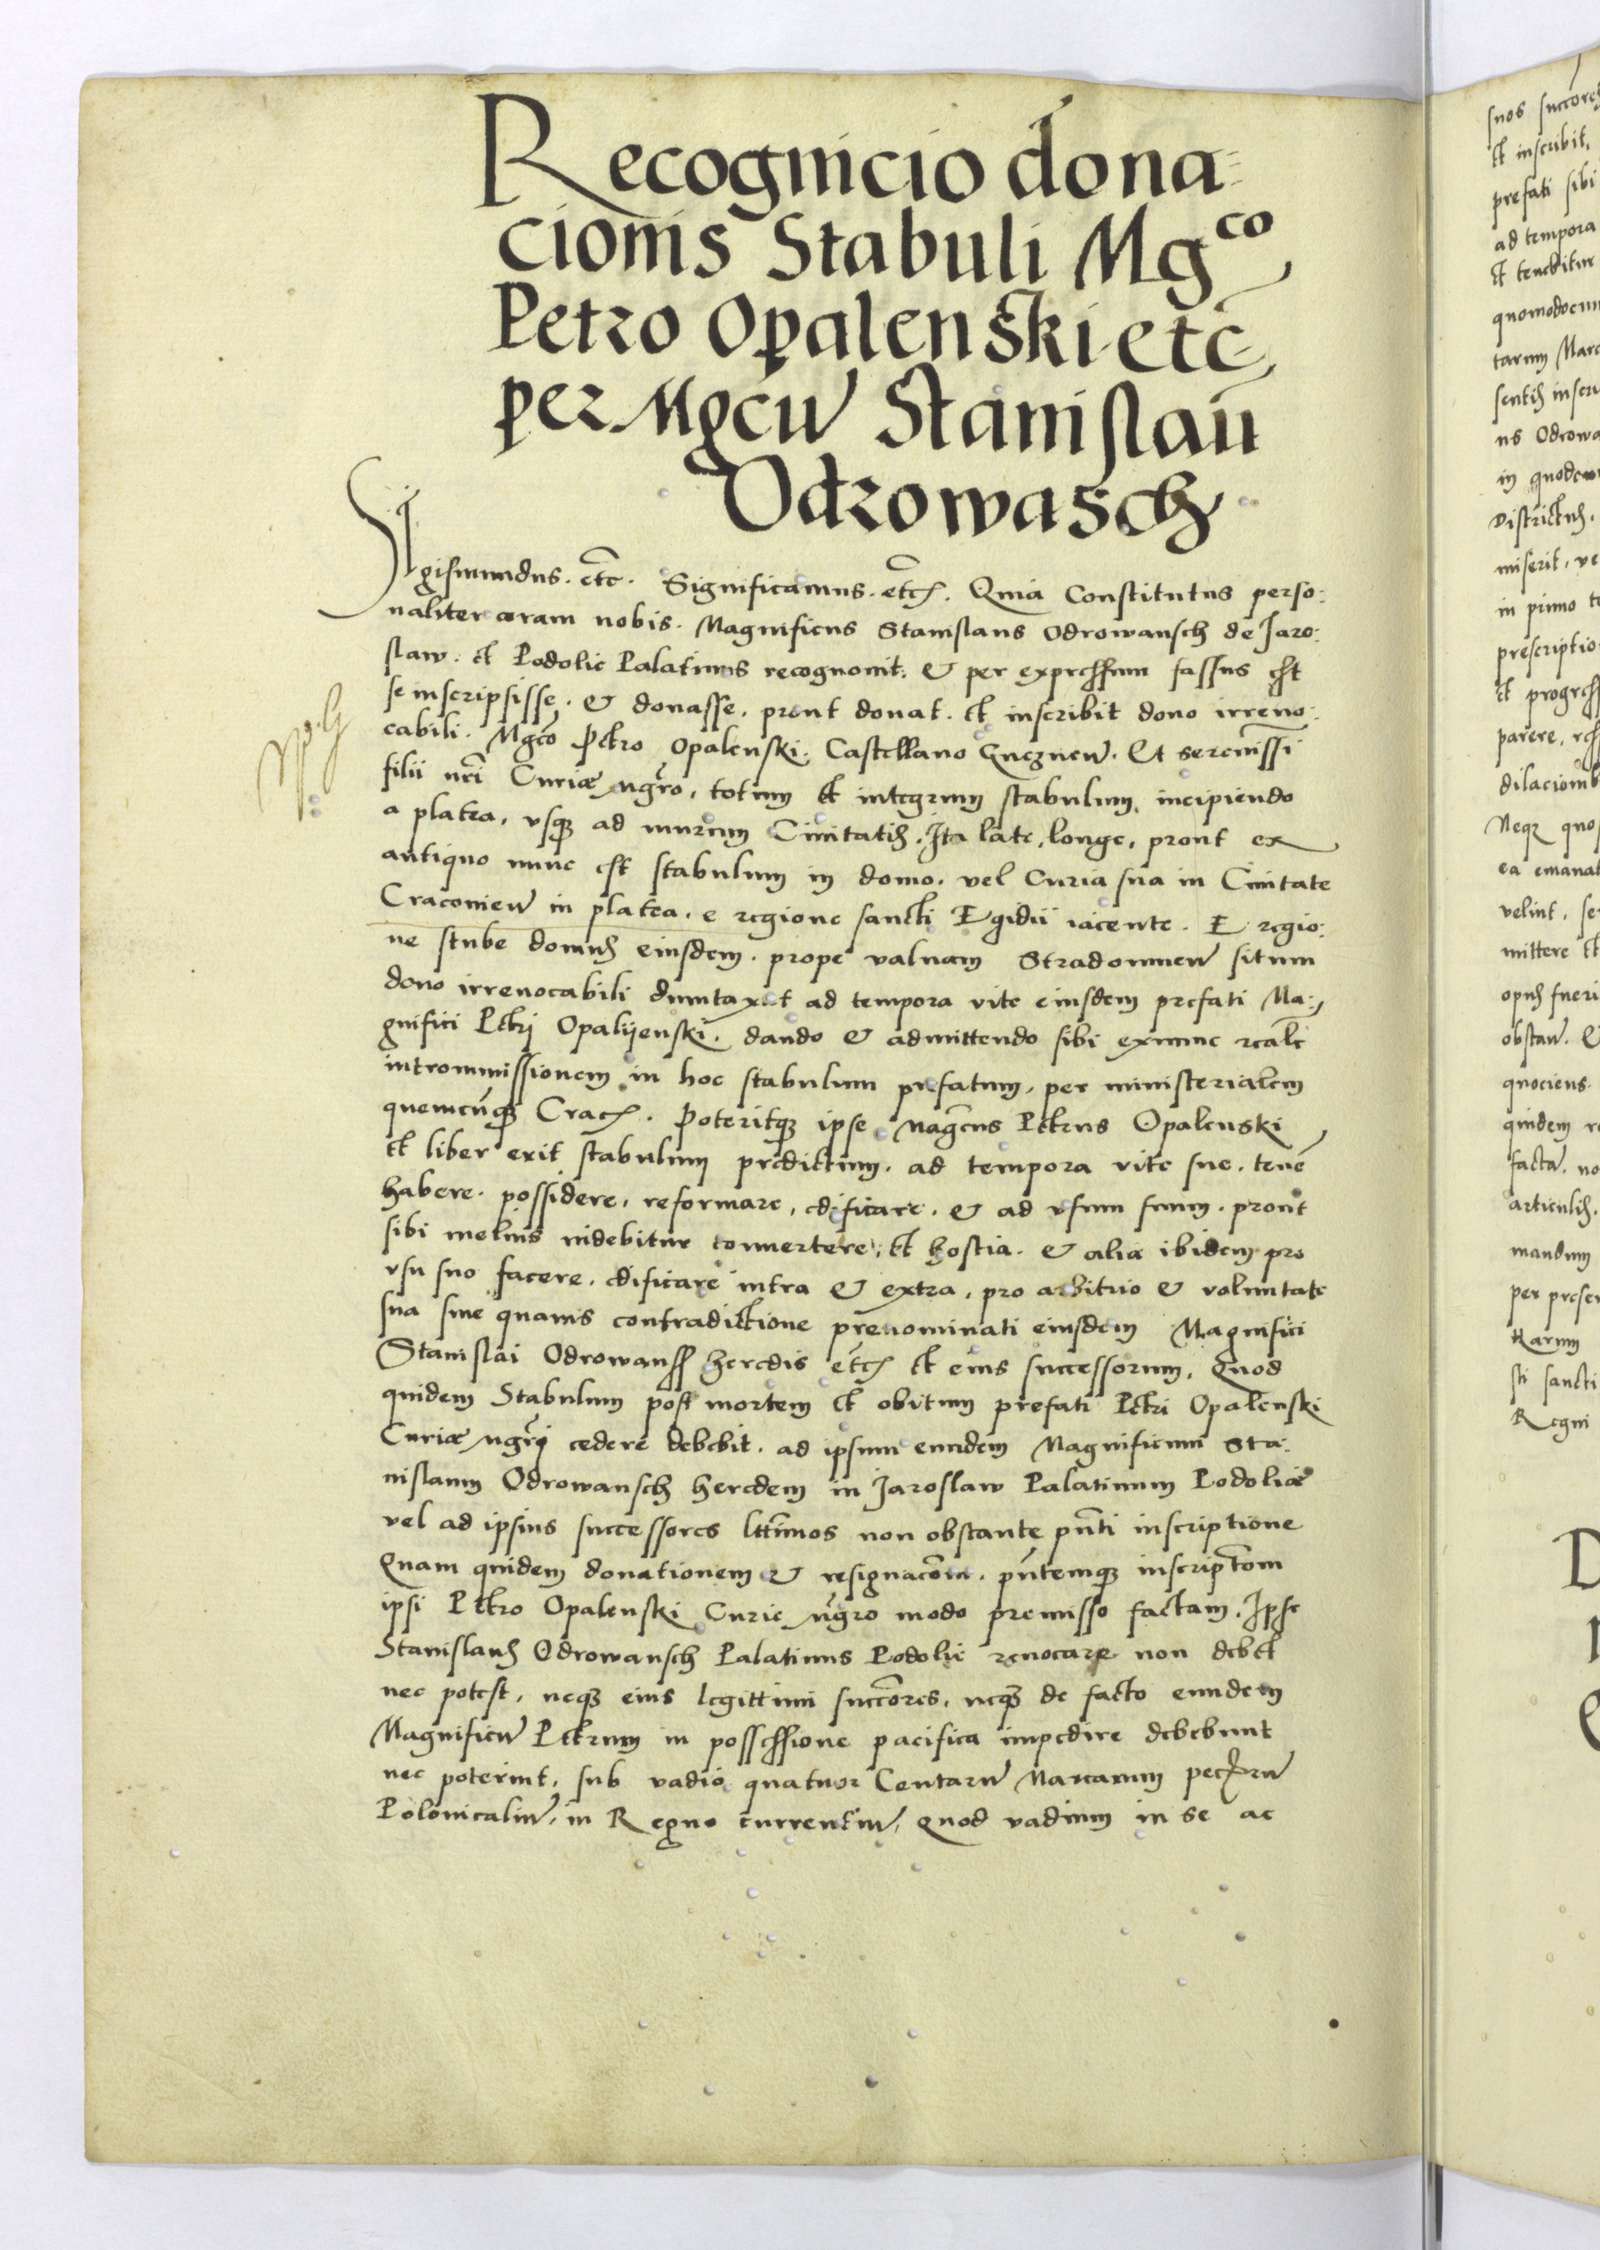 Recognicio dona=
cionis Stabuli Mgco
Petro Opalenski etc
per Mgcu Stanislau
Odrowasch
Sigismundus. etc. Significamus. etc. Quia Constitutus perso:
naliter coram nobis. Magnificus Stanislaus Odrowansch de Jaro:
slaw. et Podolie Palatinus recognouit: & per expressum fassus est
se inscripsisse. & donasse. prout donat. et inscribit dono irreuo:
cabili. Mgco Petro Opalenski. Castellano Gneznen. Et serenissi
filii nri Curiæ mgro, totum et integrum stabulum, incipiendo
a platea, vsque ad murum Ciuitatis. Ita late, longe, prout ex
antiquo nunc est stabulum in domo. vel Curia sua in Ciuitate
Cracouien in platea. e regione sancti Egidii iacente. E regio:
ne stube domus eiusdem. prope valuam Stradomien situm
dono irreuocabili dumtaxat ad tempora vite eiusdem prefati Ma:
gnifici Petri Opalijenski. dando & admittendo sibi exnunc reale
intromissionem in hoc stabulum prefatum. per ministerialem
quemcunque Crac. Poteritque ipse Magcus Petrus Opalenski
et liber erit stabulum predictum. ad tempora vite sue. tene
habere. possidere, reformare, edificare. & ad vsum suum. prout
sibi melius uidebitur conuertere, et hostia. & alia ibidem pro
vsu suo facere. edificare intra & extra, pro arbitrio & voluntate
sua sine quauis contradictione prenominati eiusdem Magnifici
Stanislai Odrowansch heredis etc et eius successorum, Quod
quidem Stabulum post mortem et obitum prefati Petri Opalenski
Curiæ mgri cedere debebit. ad ipsum eundem Magnificum Sta:
nislaum Odrowansch heredem in Jaroslaw Palatinum Podoliæ
vel ad ipsius successores lttimos non obstante pnti inscriptione
Quam quidem donationem & resignacom. pntemque inscriptom
ipsi Petro Opalenski Curie mgro modo premisso factam. Ipse
Stanislaus Odrowansch Palatinus Podolie reuocare non debet
nec potest, neque eius legittimi succores, neque de facto eundem
Magnificu Petrum in possessione pacifica impedire debebunt
nec poterint, sub vadio quatuor Centaru Marcarum pecuaru
Polonicaliu, in Regno currentiu, Quod vadium in se ac
suos succores
et inscribit,
prefati sibi
ad tempora
et tenebitur
in
miserit, ve
ea emanat
velint, se
mittere et
quidem
facta, no
articulis.
mandum
per presen
sti sancti
Regni